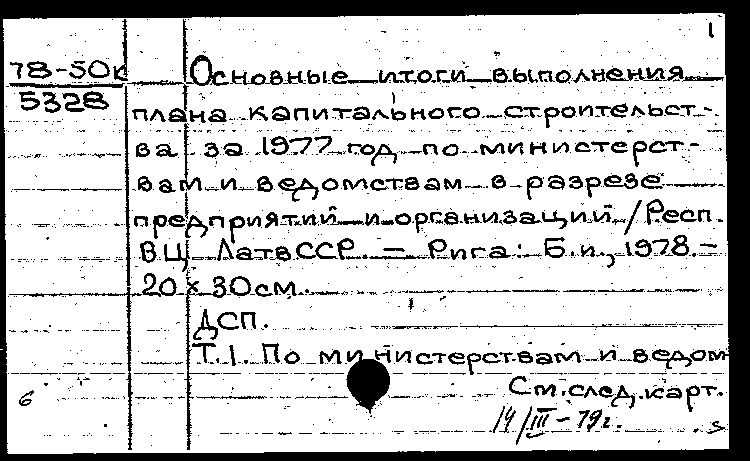 1
78-50к Основные итоги выполнения
5328 плана капитального строительст-
ва за 1977 год по министерст-
вам и ведомствам в разрезе
предприятий и организаций / Респ.
ВЦ ЛатвССР. — Рига: Б.и., 1978.-
20 x 30 см.
ДСП.
Т.1. По министерствам и ведом
См. след. карт.
6
14/III-79г.